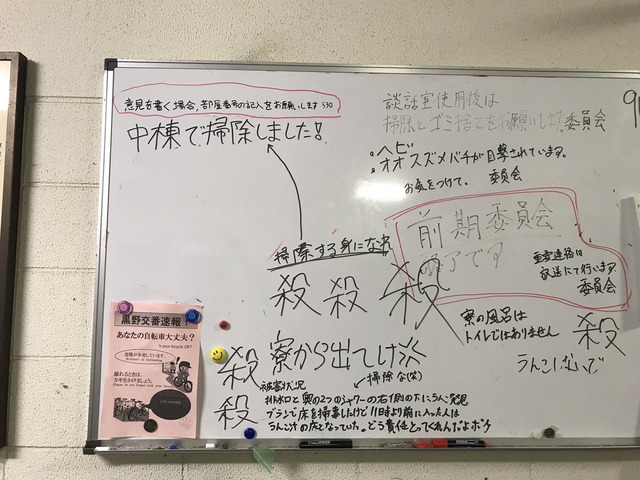 意見を書く場合、部屋番号の記入をお願いします 530
中棟で掃除しました!
談話室使用後は
掃除とゴミ捨てをお願いします 委員会
・ヘビ
・オオスズメバチが目撃されています。
お気をつけて。 委員会
前期委員会
終了です
重要連絡は
放送にて行います。
委員会
掃除する身になれ
殺 殺 殺
寮の風呂は
トイレではありません
殺
うんこしないで
殺 寮から出てけ
殺
掃除な(笑)
被害状況
排水口と奥の2つのシャワーの右側の下にうんこ発見
ブラシで床を掃事したけど11日時より前に入った人は
うんこ汁の床となっていた。どう責任とってくれんだよボケ
黒野交番速報!
あなたの自転車大丈夫?
Is your bicycle OK?
盗難が多発しています。
離れるときは、
カギをかけましょう。